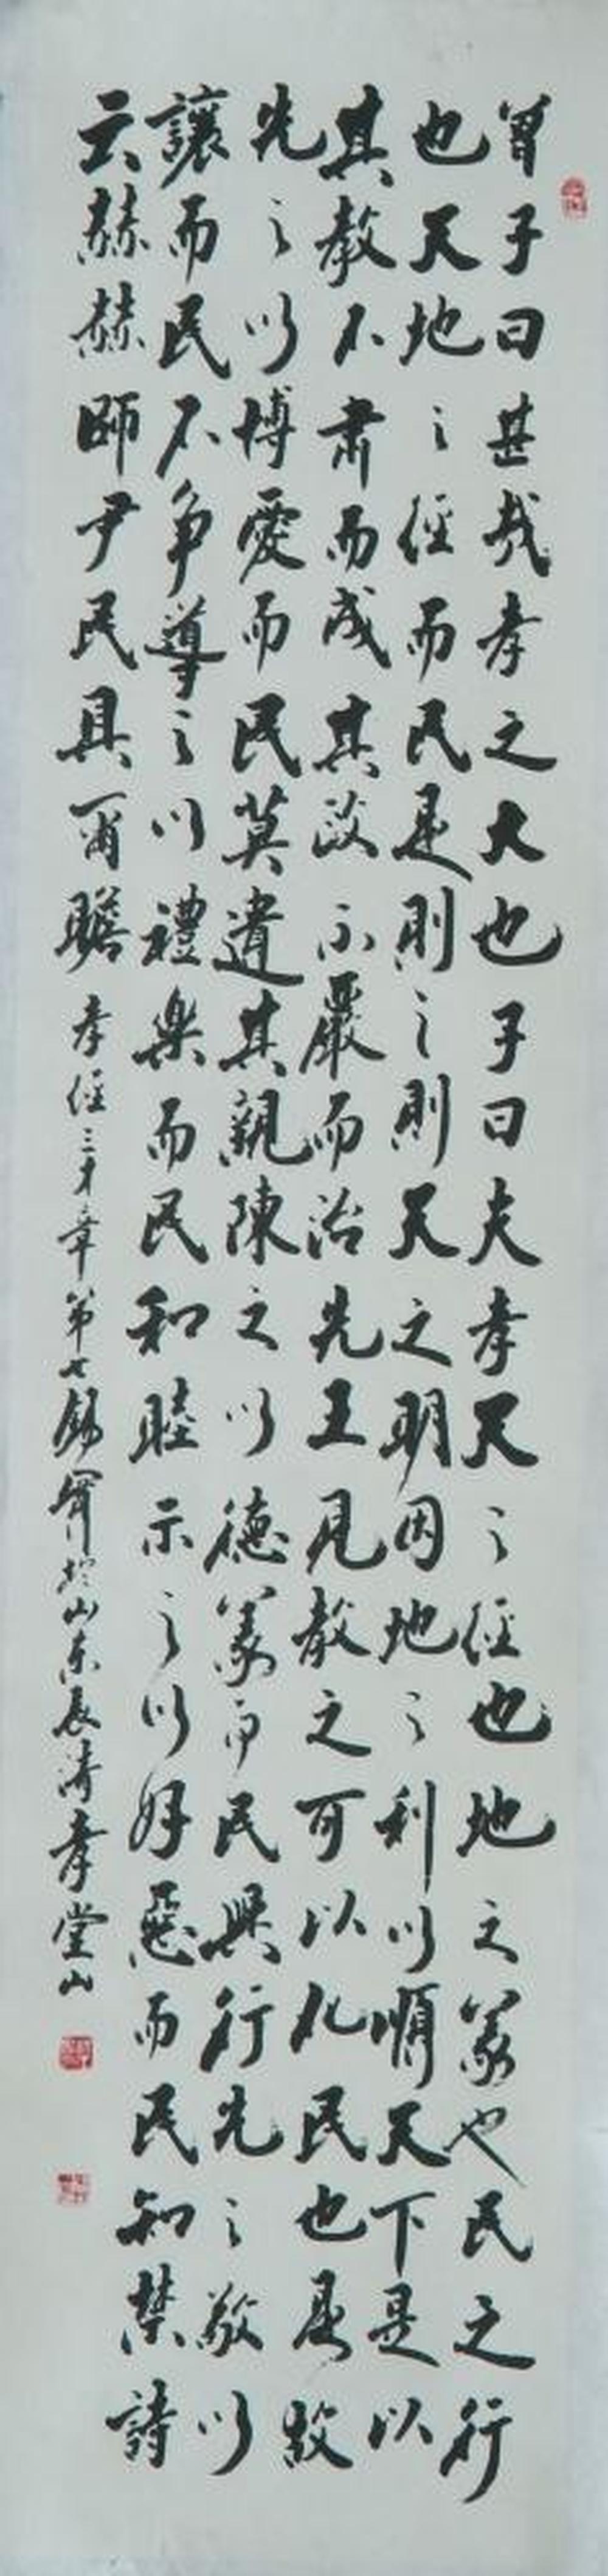 曾子曰甚哉孝之大也子曰夫孝天之經也地之義也民之行
也天地之經而民是則之則天之明因地之利以順天下是以
其教不肅而成其政不嚴而治先王見教之可以化民也是故
先之以博愛而民莫遺其親陳之以德義而民興行先之敬以
讓而民不争導之以禮樂而民和睦示之以好惡而民知禁詩
云赫赫師尹民具爾瞻孝經三才章第七錫寧於山东長清孝堂山